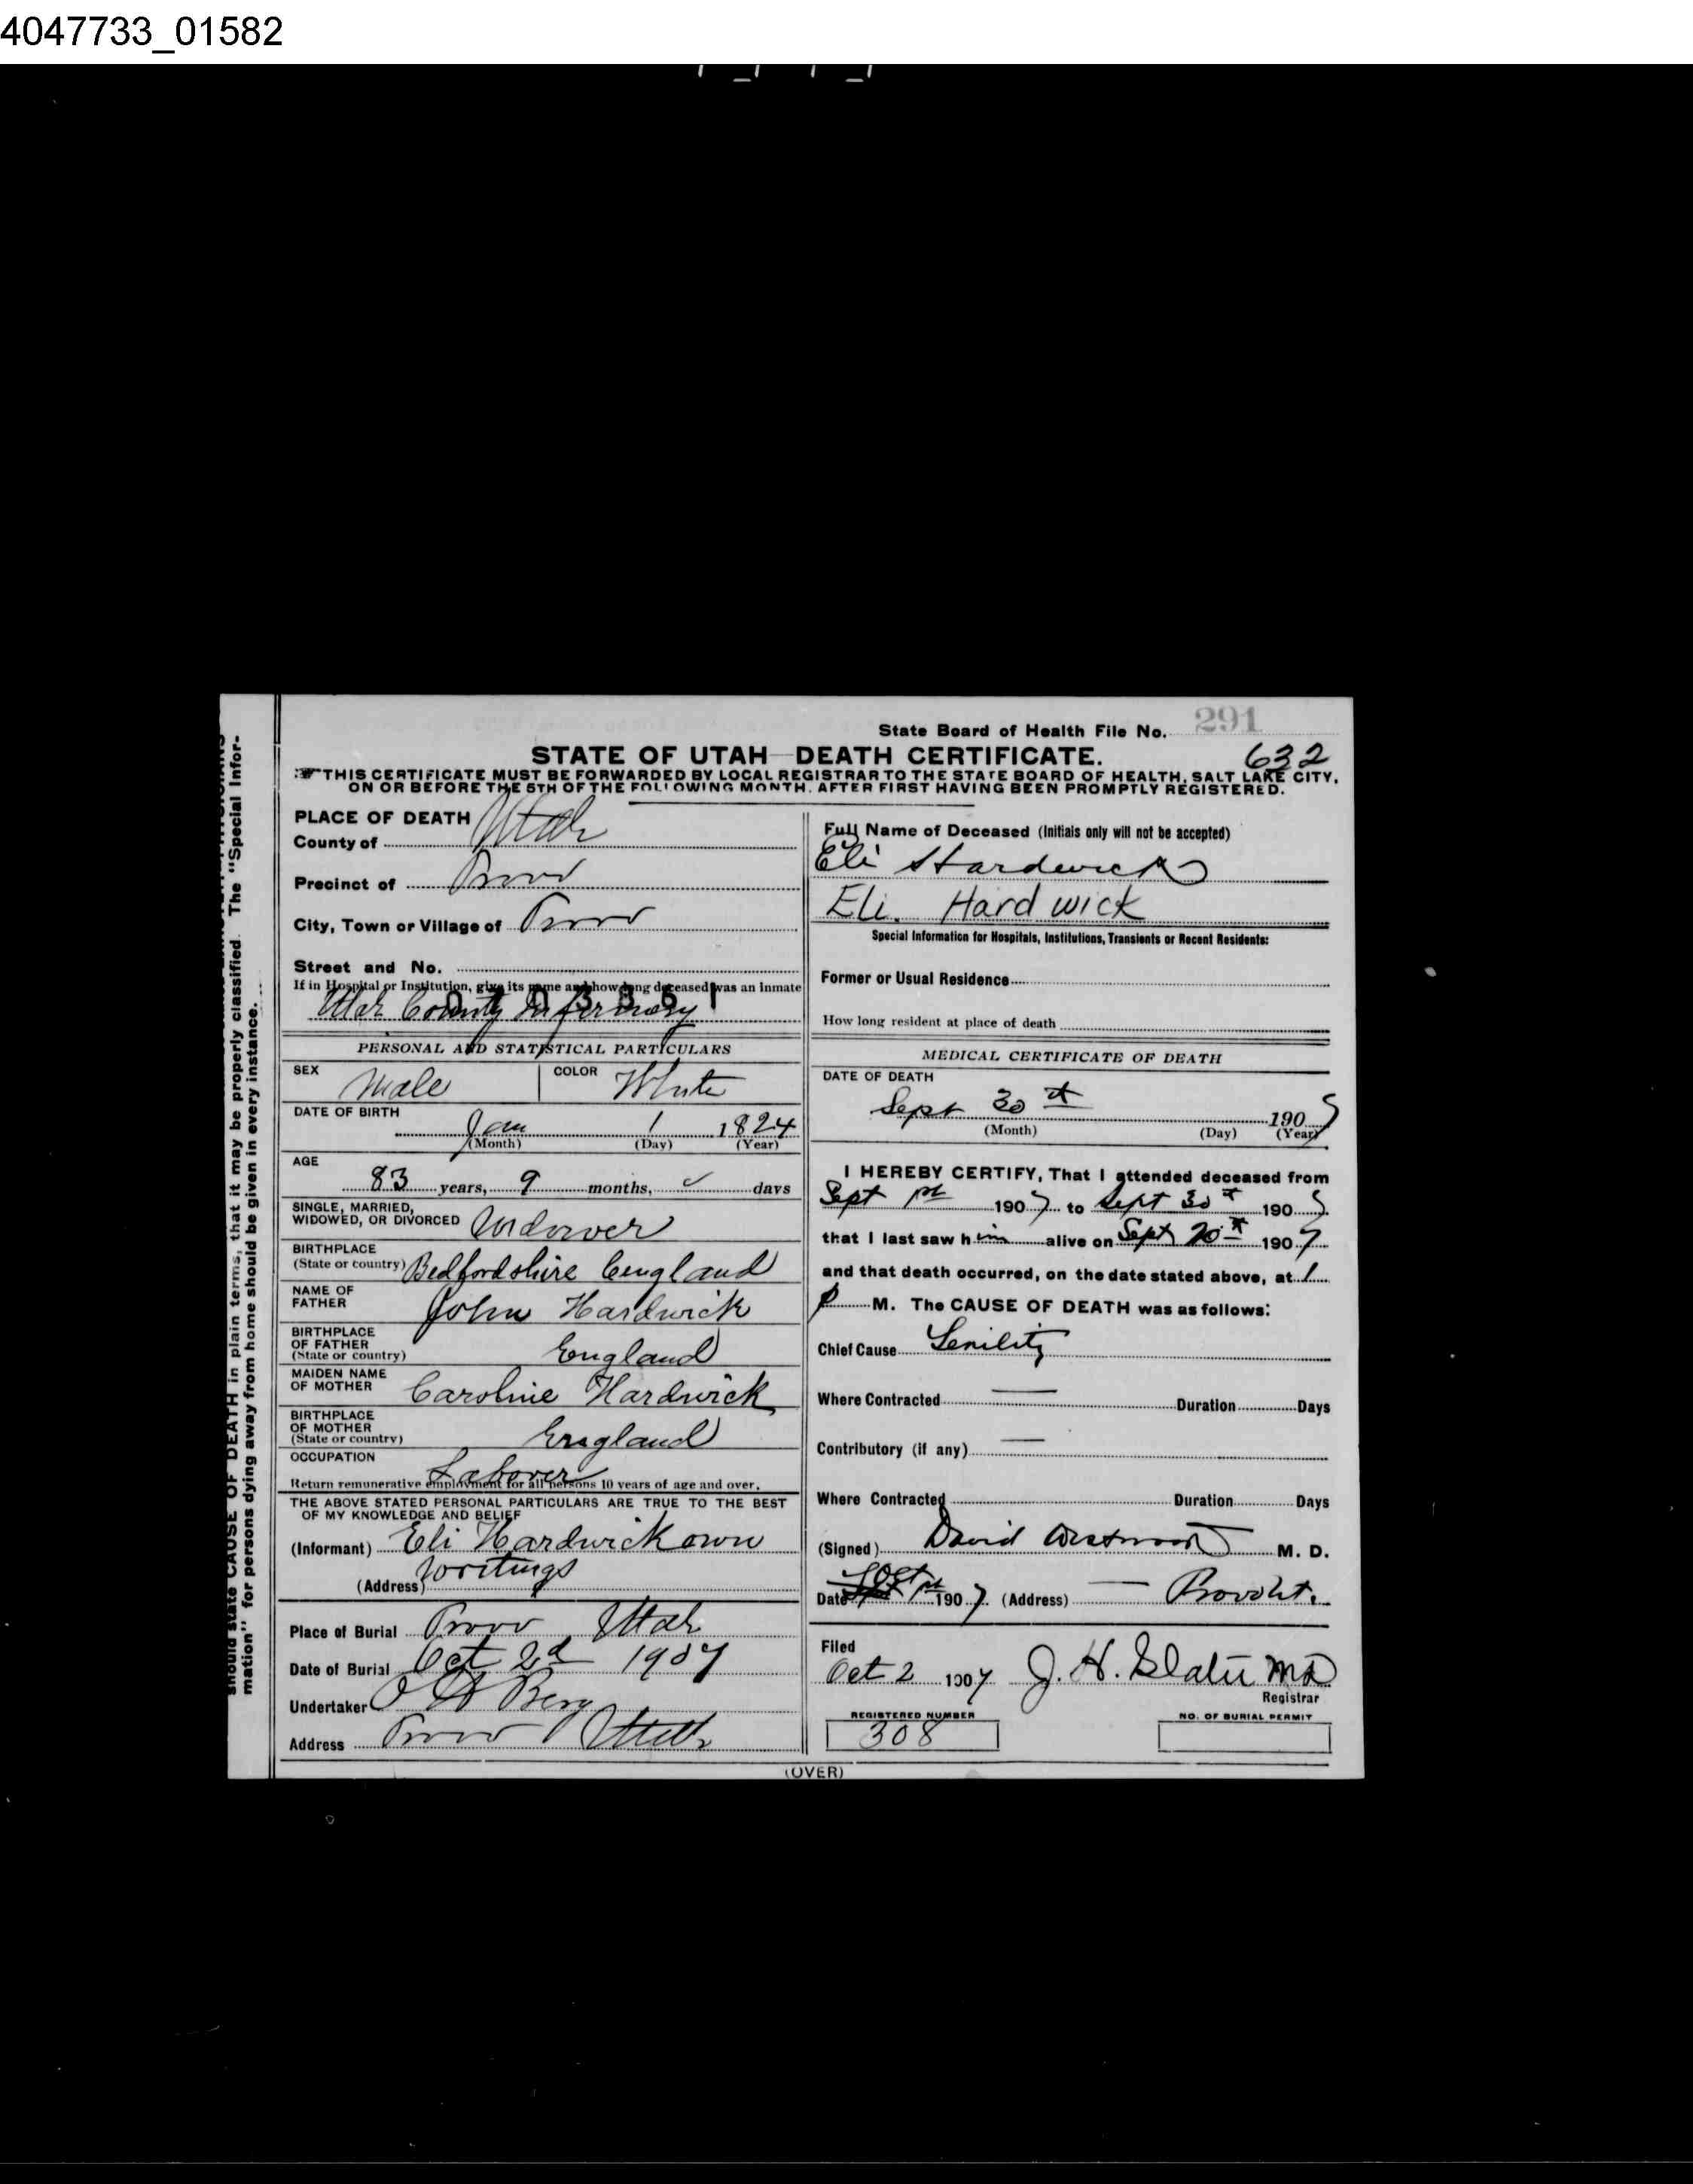 4047733_01582
State Board of Health File No. 291
STATE OF UTAH—DEATH CERTIFICATE. 632
THIS CERTIFICATE MUST BE FORWARDED BY LOCAL REGISTRAR TO THE STATE BOARD OF HEALTH, SALT LAKE CITY,
ON OR BEFORE THE 5TH OF THE FOLLOWING MONTH, AFTER FIRST HAVING BEEN PROMPTLY REGISTERED.
PLACE OF DEATH
County of Utah
Precinct of Provo
City, Town or Village of Provo
Street and No.
If in Hospital or Institution, give its name and how long deceased was an inmate
Utah County Infirmary
PERSONAL AND STATISTICAL PARTICULARS
SEX Male COLOR White
DATE OF BIRTH
Jan 1 1824
(Month) (Day) (Year)
AGE
83 years, 9 months, days
SINGLE, MARRIED,
WIDOWED, OR DIVORCED Widower
BIRTHPLACE
(State or country) Bedfordshire England
NAME OF
FATHER John Hardwick
BIRTHPLACE
OF FATHER
(State or country) England
MAIDEN NAME
OF MOTHER Caroline Hardwick
BIRTHPLACE
OF MOTHER
(State or country) England
OCCUPATION
Laborer
Return remunerative employment for all persons 10 years of age and over.
THE ABOVE STATED PERSONAL PARTICULARS ARE TRUE TO THE BEST
OF MY KNOWLEDGE AND BELIEF
(Informant) Eli Hardwick own
writings
(Address)
Place of Burial Provo Utah
Date of Burial Oct 2d 1907
Undertaker Berg
Address Provo Utah
Full Name of Deceased (Initials only will not be accepted)
Eli Hardwick
Eli. Hardwick
Special Information for Hospitals, Institutions, Transients or Recent Residents:
Former or Usual Residence
How long resident at place of death
MEDICAL CERTIFICATE OF DEATH
DATE OF DEATH
Sept 30th 1907
(Month) (Day) (Year)
I HEREBY CERTIFY, That I attended deceased from
Sept 1st 1907 to Sept 30th 1907.
that I last saw him alive on Sept 20th 1907
and that death occurred, on the date stated above, at 1
P M. The CAUSE OF DEATH was as follows:
Chief Cause Senility
Where Contracted — Duration Days
Contributory (if any) —
Where Contracted Duration Days
(Signed) David Westwood M. D.
Date Oct 1st 1907. (Address) — Provo Ut.
Filed
Oct 2 1907 J. H. Slater MD
Registrar
REGISTERED NUMBER
308
NO. OF BURIAL PERMIT
(OVER)
should state CAUSE OF DEATH in plain terms, that it may be properly classified. The "Special Infor-
mation" for persons dying away from home should be given in every instance.